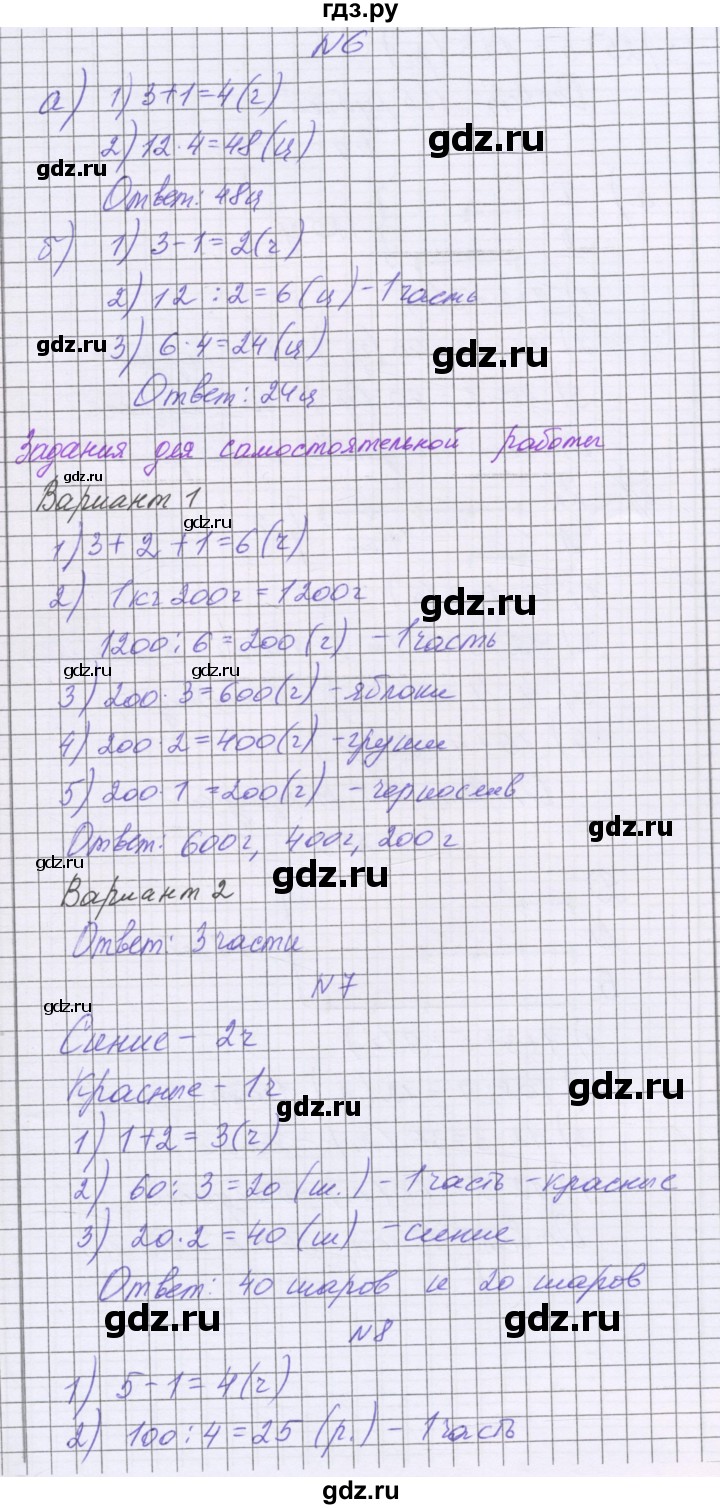 гдз.ру
N6
а) 1) 3+1=4(ч)
gdz.ru
2) 12·4=48(ц)
gdz.ru
Ответ: 48ц
б) 1) 3-1=2(ч)
2) 12:2=6(ц)-1часть
gdz.ru
3) 6·4=24(ц)
gdz.ru
Ответ: 24ц
Задания для самостоятельной работы
gdz.ru
Вариант 1
gdz.ru
1) 3+2+1=6(ч)
2) 1кг200г=1200г
gdz.ru
1200:6=200(г) -1часть
gdz.ru
gdz.ru
3) 200·3=600(г)-яблоки
4) 200·2=400(г)-груши
5) 200·1=200(г) -чернослив
gdz.ru
Ответ: 600г, 400г, 200г
gdz.ru
gdz.ru
Вариант 2
Ответ: 3части
N7
gdz.ru
Синие- 2ч
Красные-1ч
gdz.ru
gdz.ru
1) 1+2=3(ч)
2) 60:3=20(ш.)-1часть-красные
3) 20·2=40(ш) -синие
Ответ: 40 шаров и 20 шаров
gdz.ru
gdz.ru
N8
1) 5-1=4(ч)
2) 100:4=25 (р.)-1часть
gdz.ru